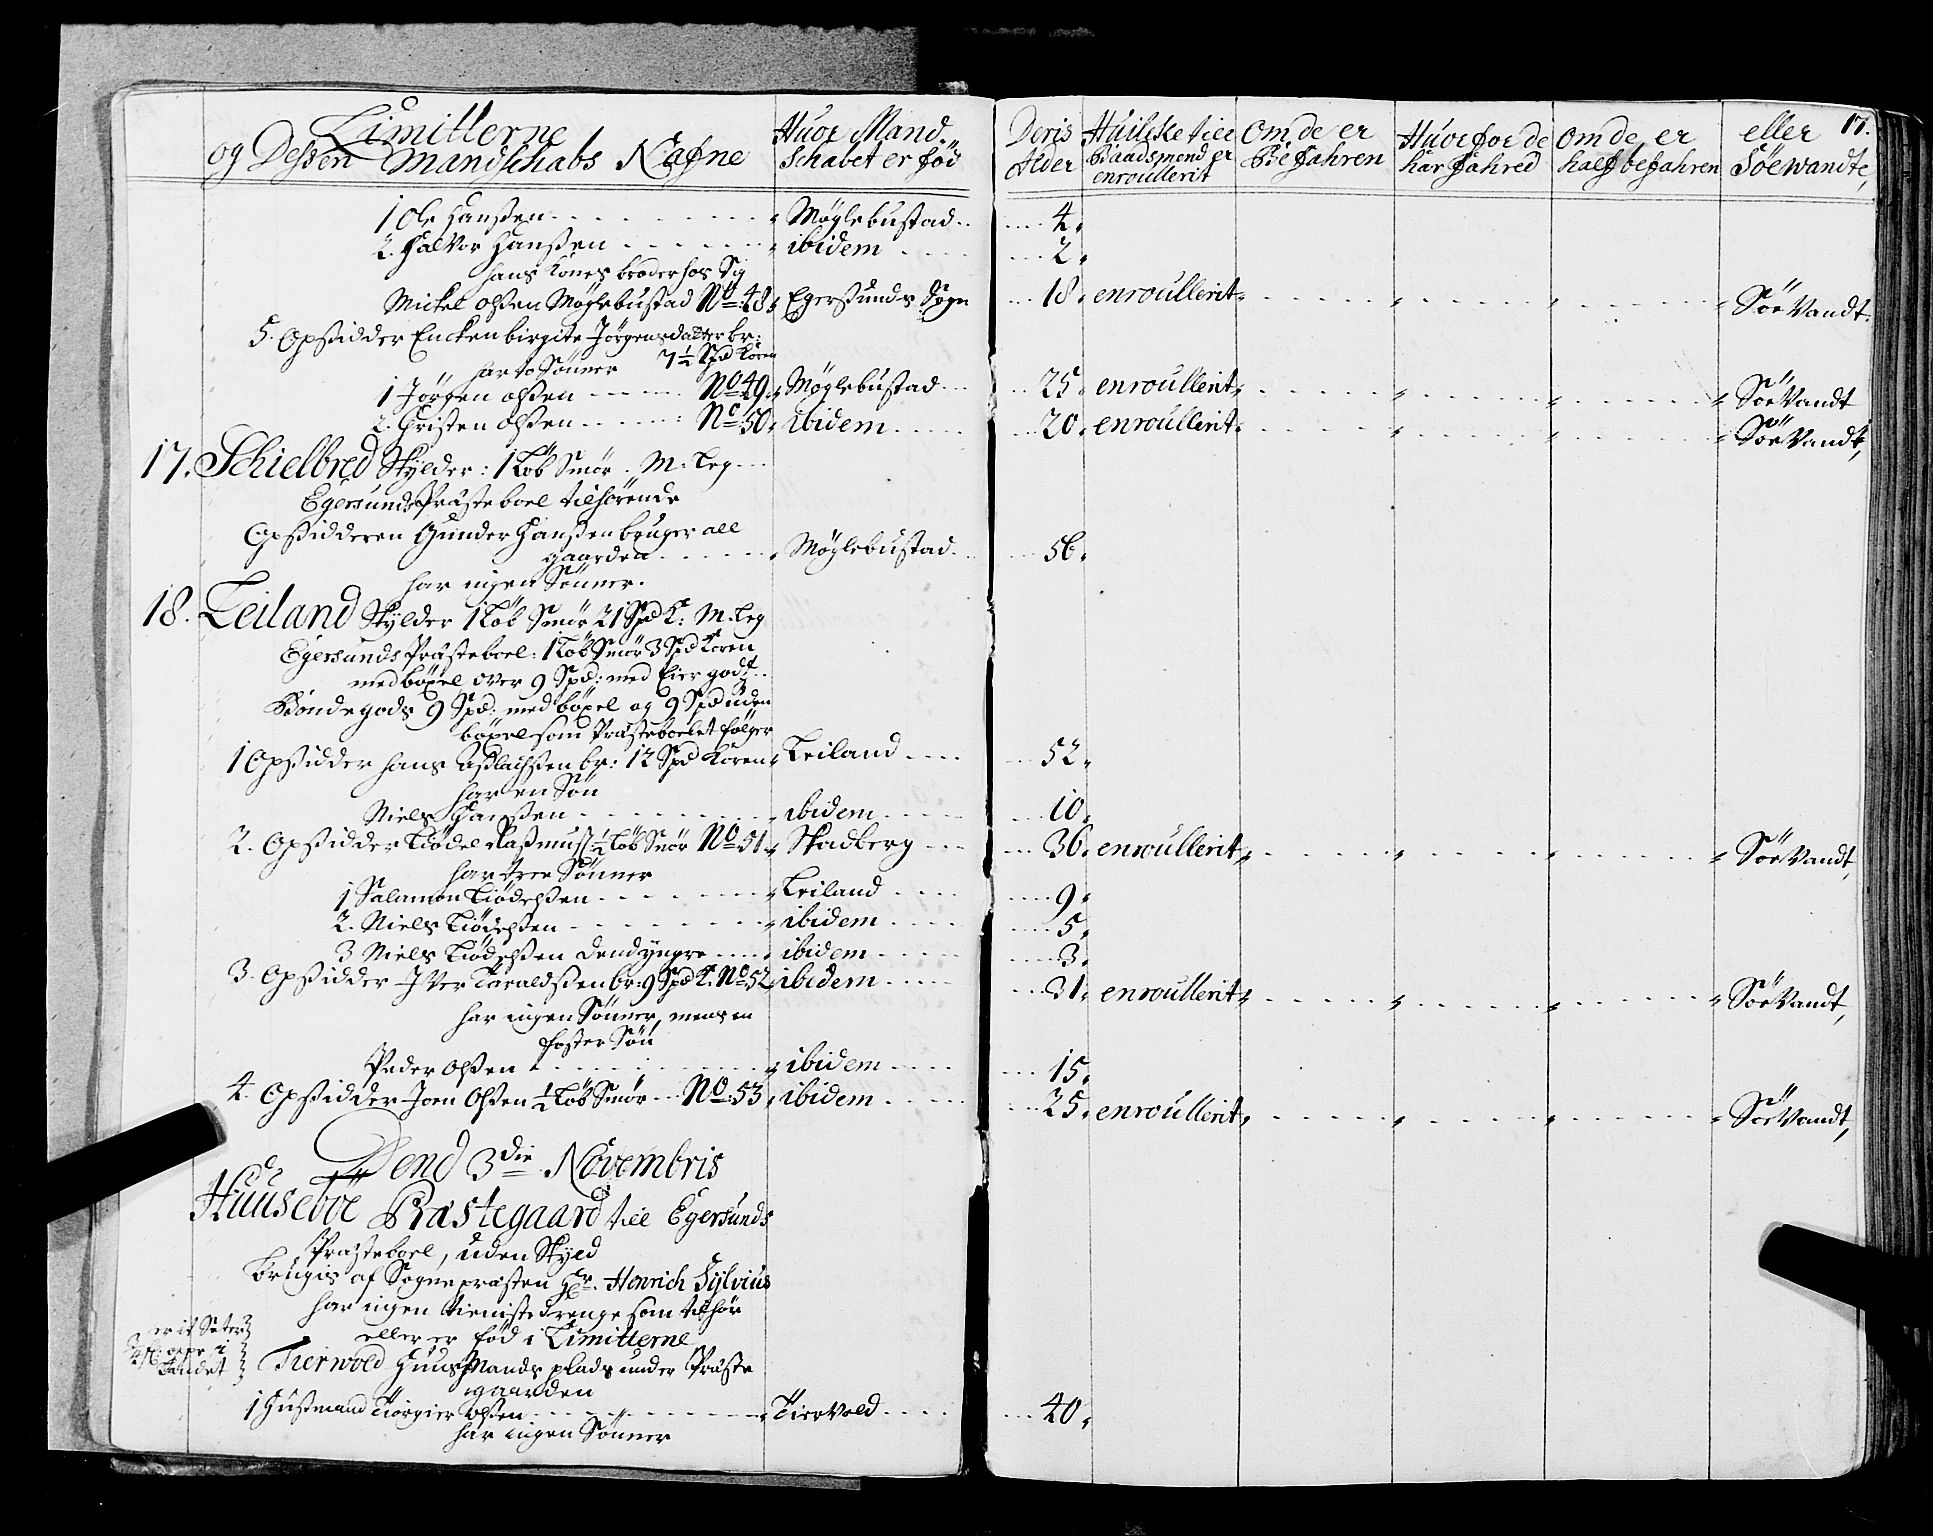 Limitterne og Dessen Mandschabs Nafne | Huor Mand Schabet er fød | Deris Alder | Huilcke till Baadsmend er enroullerit | Om de er Befahren | Huorfor de har fahred | Om de er half befahren | eller Söewandte, 17.
1 Ole Hanßen | Møglebustad | 4.
2. Halvor Hanßen | ibidem | 2.
hans Kones broder hos Sig
Mickel Olßen Møglebustad No: 48, | Egersunds Sogn | 18. | enroullerit | Söe Vandt.
5. Opsidder Encken birgite Jörgensdatter br:
7½ Spd Koren
har to Sönner
1 Jörgen Olßen No 49, | Møglebustad | 25. | enroullerit | Söe Vandt
2. Christen Olßen No: 50, | ibidem | 20. | enroullerit | Söe Vandt,
17. Schielbred Skylder: 1 Löb Smör. M: Leg
Egersunds Præsteboel tilhörende
Opsidderen Gunder Hanßen bruger all
gaarden | Møglebustad | 56.
har ingen Sönner.
18. Leiland Skylder 1 Löb Smör 21 Spd K: M: Leg
Egersunds Præsteboel: 1 Löb Smör 3 Spd Koren
med böxel over 9 Spd: med Eiergodz
Böndegods 9 Spd: med böxel og 9 Spd uden
böxel som Præsteboelet fölger
1 Opsidder Hans Aslachßen br: 12 Spd Koren | Leiland | 52.
har en Sön
Niels Hanßen | ibidem | 10.
2. Opsidder Tiödel Raßmuß: ½ Löb Smör No 51, | Skadberg | 36. | enroullerit | Söe Vandt,
har tree Sönner
1 Salamon Tiödelßen | Leiland | 9.
2. Niels Tiödelßen | ibidem | 5.
3 Niels Tiödelßen dend yngre | ibidem | 3.
3. Opsidder Iver Taraldßen br: 9 Spd K. No 52, | ibidem | 31. | enroullerit | Söe Vandt,
har ingen Sönner, mens en
foster Sön
Peder Olßen | ibidem | 15.
4. Opsidder Joen Olßen ½ Löb Smör No: 53, | ibidem | 25. | enroullerit | Söe Vandt,
Dend 3die Novembris
Huuseböe Præstegaard till Egersunds
Præsteboel, uden Skyld
Brugis af Sognepræsten Hr. Henrich Sylvius
har ingen tienistedrenge som tilhör
eller er fød i Limitterne
er it Sæter
i
Landet
Tierwold Huusmands plads under Præste
gaarden
1 Husmand Tiörgier Olßen | Tiervold | 40.
har ingen Sönner